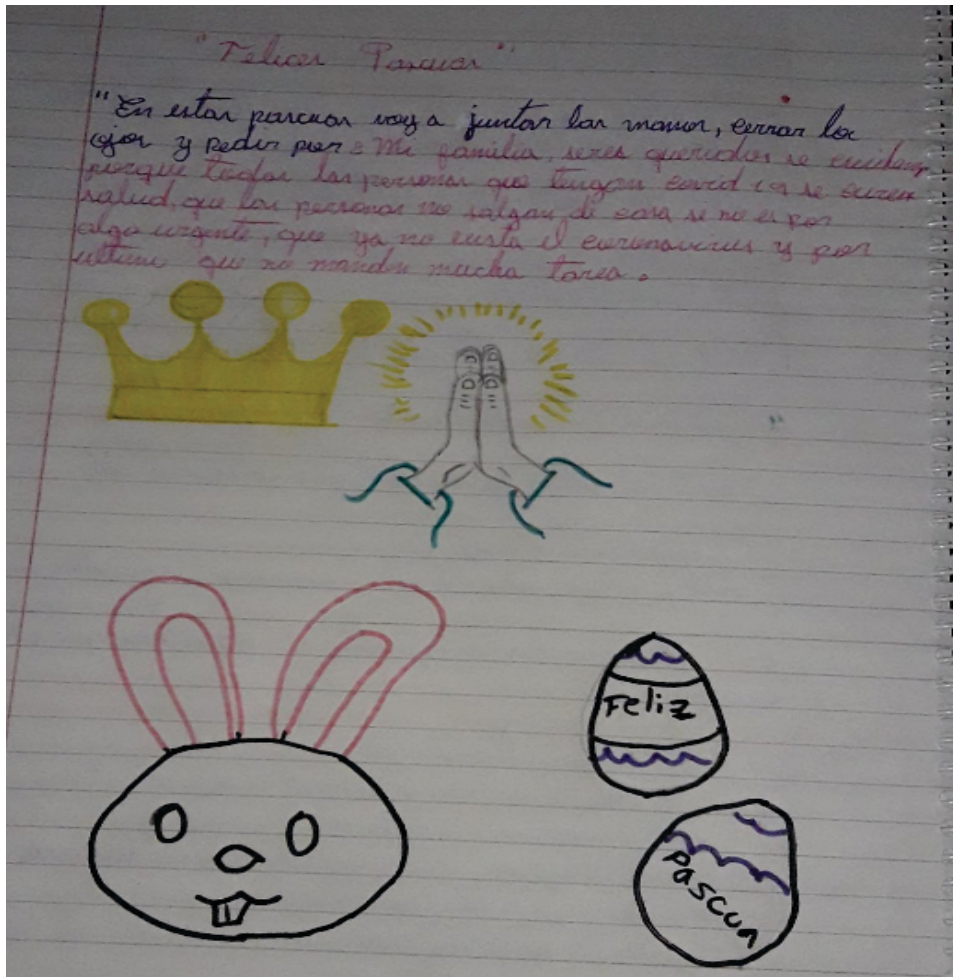 "Felices Pascuas"
"En estas pascuas voy a juntar las manos, cerrar los
ojos y pedir por: Mi familia, seres queridos se cuiden,
porque todas las personas que tengan covid 19 se curen
salud, que las personas no salgan de casa se no es por
algo urgente, que ya no exista el coronavirus y por
ultimo que no manden mucha tarea.
Feliz
Pascua